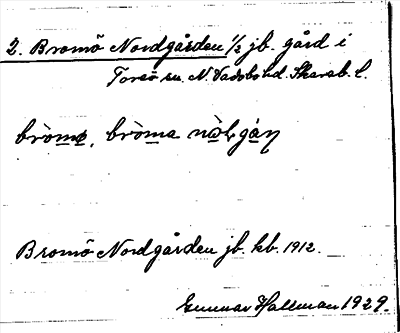 2. Bromö Nordgården 1/2 jb. gård i
Torsö sn. N. Vadsbo hd. Skarab. l.
bròmø, bròma nò̱ɫgá̱ɳ
Bromö Nordgården jb. kb. 1912.
Gunnar Hallman 1929.